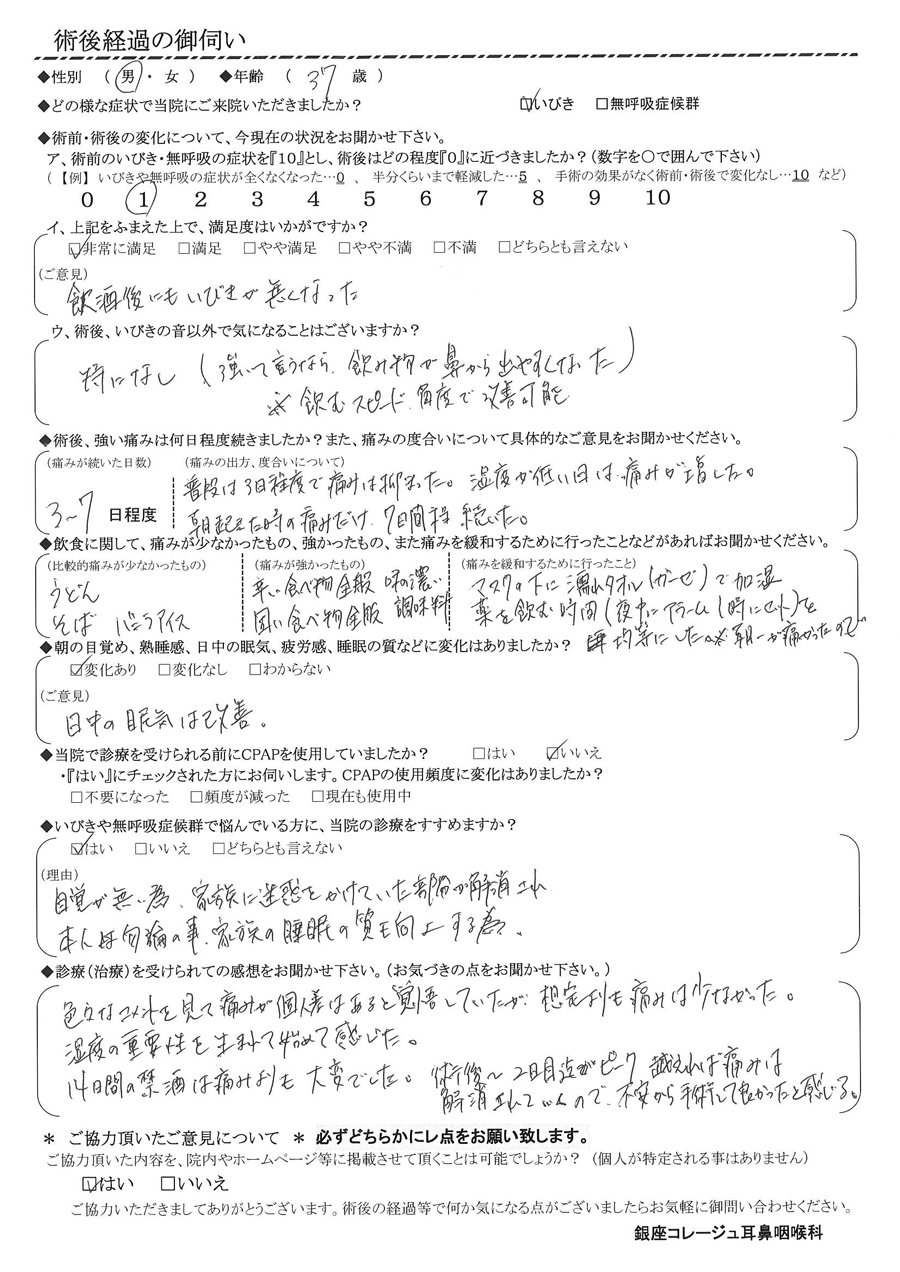 術後経過の御伺い
◆性別 ( 男 ・ 女 ) ◆年齢 ( 37 歳 )
◆どの様な症状で当院にご来院いただきましたか? ☑いびき □無呼吸症候群
◆術前・術後の変化について、今現在の状況をお聞かせ下さい。
ア、術前のいびき・無呼吸の症状を『10』とし、術後はどの程度『0』に近づきましたか?(数字を〇で囲んで下さい)
(【例】 いびきや無呼吸の症状が全くなくなった…0 、 半分くらいまで軽減した…5 、 手術の効果がなく術前・術後で変化なし…10 など)
0 1 2 3 4 5 6 7 8 9 10
イ、上記をふまえた上で、満足度はいかがですか?
☑非常に満足 □満足 □やや満足 □やや不満 □不満 □どちらとも言えない
(ご意見)
飲酒後にもいびきが無くなった
ウ、術後、いびきの音以外で気になることはございますか?
特になし (強いて言うなら、飲み物が鼻から出やすくなった)
※飲むスピード、角度で改善可能
◆術後、強い痛みは何日程度続きましたか?また、痛みの度合いについて具体的なご意見をお聞かせください。
(痛みが続いた日数) (痛みの出方、度合いについて)
普段は3日程度で痛みは抑まった。湿度が低い日は痛みが増した。
3~7 日程度
朝起きた時の痛みだけ、7日間程続いた。
◆飲食に関して、痛みが少なかったもの、強かったもの、また痛みを緩和するために行ったことなどがあればお聞かせください。
(比較的痛みが少なかったもの) (痛みが強かったもの) (痛みを緩和するために行ったこと)
うどん 辛い食べ物全般 味の濃い マスクの下に濡れタオル(ガーゼ)で加湿
そば バニラアイス 固い食べ物全般 調味料 薬を飲む時間(夜中にアラーム1時にセット)を
均等にした。※朝一が痛かったので
◆朝の目覚め、熟睡感、日中の眠気、疲労感、睡眠の質などに変化はありましたか?
☑変化あり □変化なし □わからない
(ご意見)
日中の眠気は改善。
◆当院で診療を受けられる前にCPAPを使用していましたか? □はい ☑いいえ
・『はい』にチェックされた方にお伺いします。CPAPの使用頻度に変化はありましたか?
□不要になった □頻度が減った □現在も使用中
◆いびきや無呼吸症候群で悩んでいる方に、当院の診療をすすめますか?
☑はい □いいえ □どちらとも言えない
(理由)
自覚が無い為、家族に迷惑をかけていた部分が解消され
本人は勿論の事、家族の睡眠の質も向上する為。
◆診療(治療)を受けられての感想をお聞かせ下さい。(お気づきの点をお聞かせ下さい。)
色々なコメントを見て痛みが個人差はあると覚悟していたが、想定よりも痛みは少なかった。
湿度の重要性を生まれて始めて感じた。
14日間の禁酒は痛みよりも大変でした。 術後~2日目迄がピーク 越えれば痛みは
解消されていくので、不安から手術して良かったと感じる。
* ご協力頂いたご意見について * 必ずどちらかにレ点をお願い致します。
ご協力頂いた内容を、院内やホームページ等に掲載させて頂くことは可能でしょうか? (個人が特定される事はありません)
☑はい □いいえ
ご協力いただきましてありがとうございます。術後の経過等で何か気になる点がございましたらお気軽に御問い合わせください。
銀座コレージュ耳鼻咽喉科